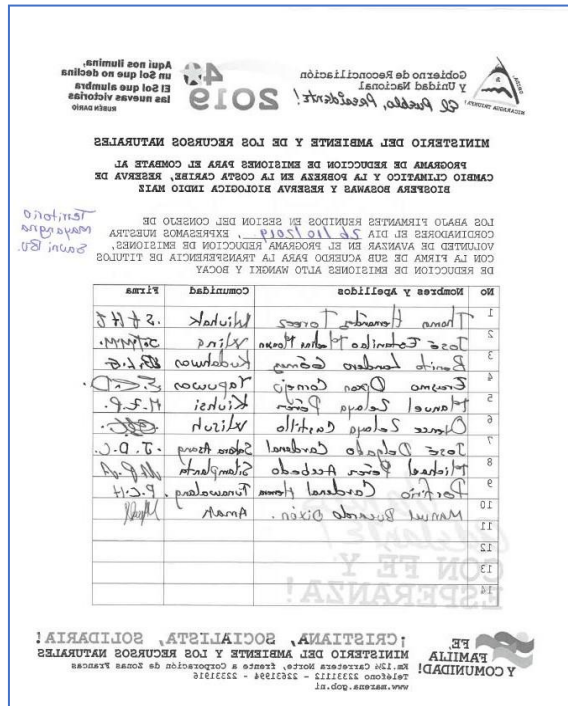 Gobierno de Reconciliación
y Unidad Nacional
El Pueblo, Presidente!
40
2019
Aquí nos ilumina,
un Sol que no declina
El Sol que alumbra
las nuevas victorias
RUBÉN DARÍO
MINISTERIO DEL AMBIENTE Y DE LOS RECURSOS NATURALES
PROGRAMA DE REDUCCION DE EMISIONES PARA EL COMBATE AL
CAMBIO CLIMATICO Y LA POBREZA EN LA COSTA CARIBE, RESERVA DE
BIOSFERA BOSAWAS Y RESERVA BIOLOGICA INDIO MAIZ
Territorio
Mayangna
Sauni Bu.
LOS ABAJO FIRMANTES REUNIDOS EN SESION DEL CONSEJO DE
CORDINADORES EL DIA 26/10/2019, EXPRESAMOS NUESTRA
VOLUNTED DE AVANZAR EN EL PROGRAMA REDUCCION DE EMISIONES,
CON LA FIRMA DE SUB ACUERDO PARA LA TRANSFERENCIA DE TITULOS
DE REDUCCION DE EMISIONES ALTO WANGKI Y BOCAY
No Nombres y Apellidos Comunidad Firma
1 Hernández Torrez
2 José Estanilao
3 Benito Landero Gómez
4 Erasmo Dixon Cornejo
5 Manuel Zelaya Pérez M.Z.P.
6 Zelaya Castillo
7 José Delgado Cardenal J.D.C.
8 Michael Pérez Acebedo
9 Porfirio Cardenal P.C.H.
10 Manuel Dixón. Amak
11
12
13
14
adelante!
CON FE Y
ESPERANZA!
FE,
FAMILIA
Y COMUNIDAD!
¡CRISTIANA, SOCIALISTA, SOLIDARIA!
MINISTERIO DEL AMBIENTE Y LOS RECURSOS NATURALES
Km.12½ Carretera Norte, frente a Corporación de Zonas Francas
Teléfono 22331112 - 22631994 - 22331916
www.marena.gob.ni